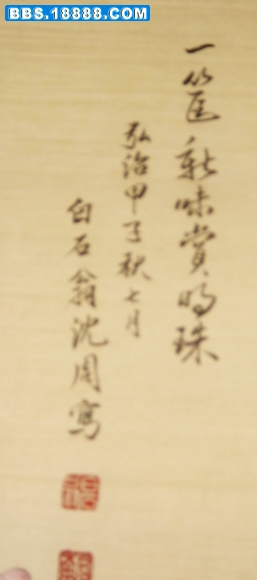 BBS.18888.COM
一筐新味賞明珠
弘治甲子秋七月
白石翁沈周寫